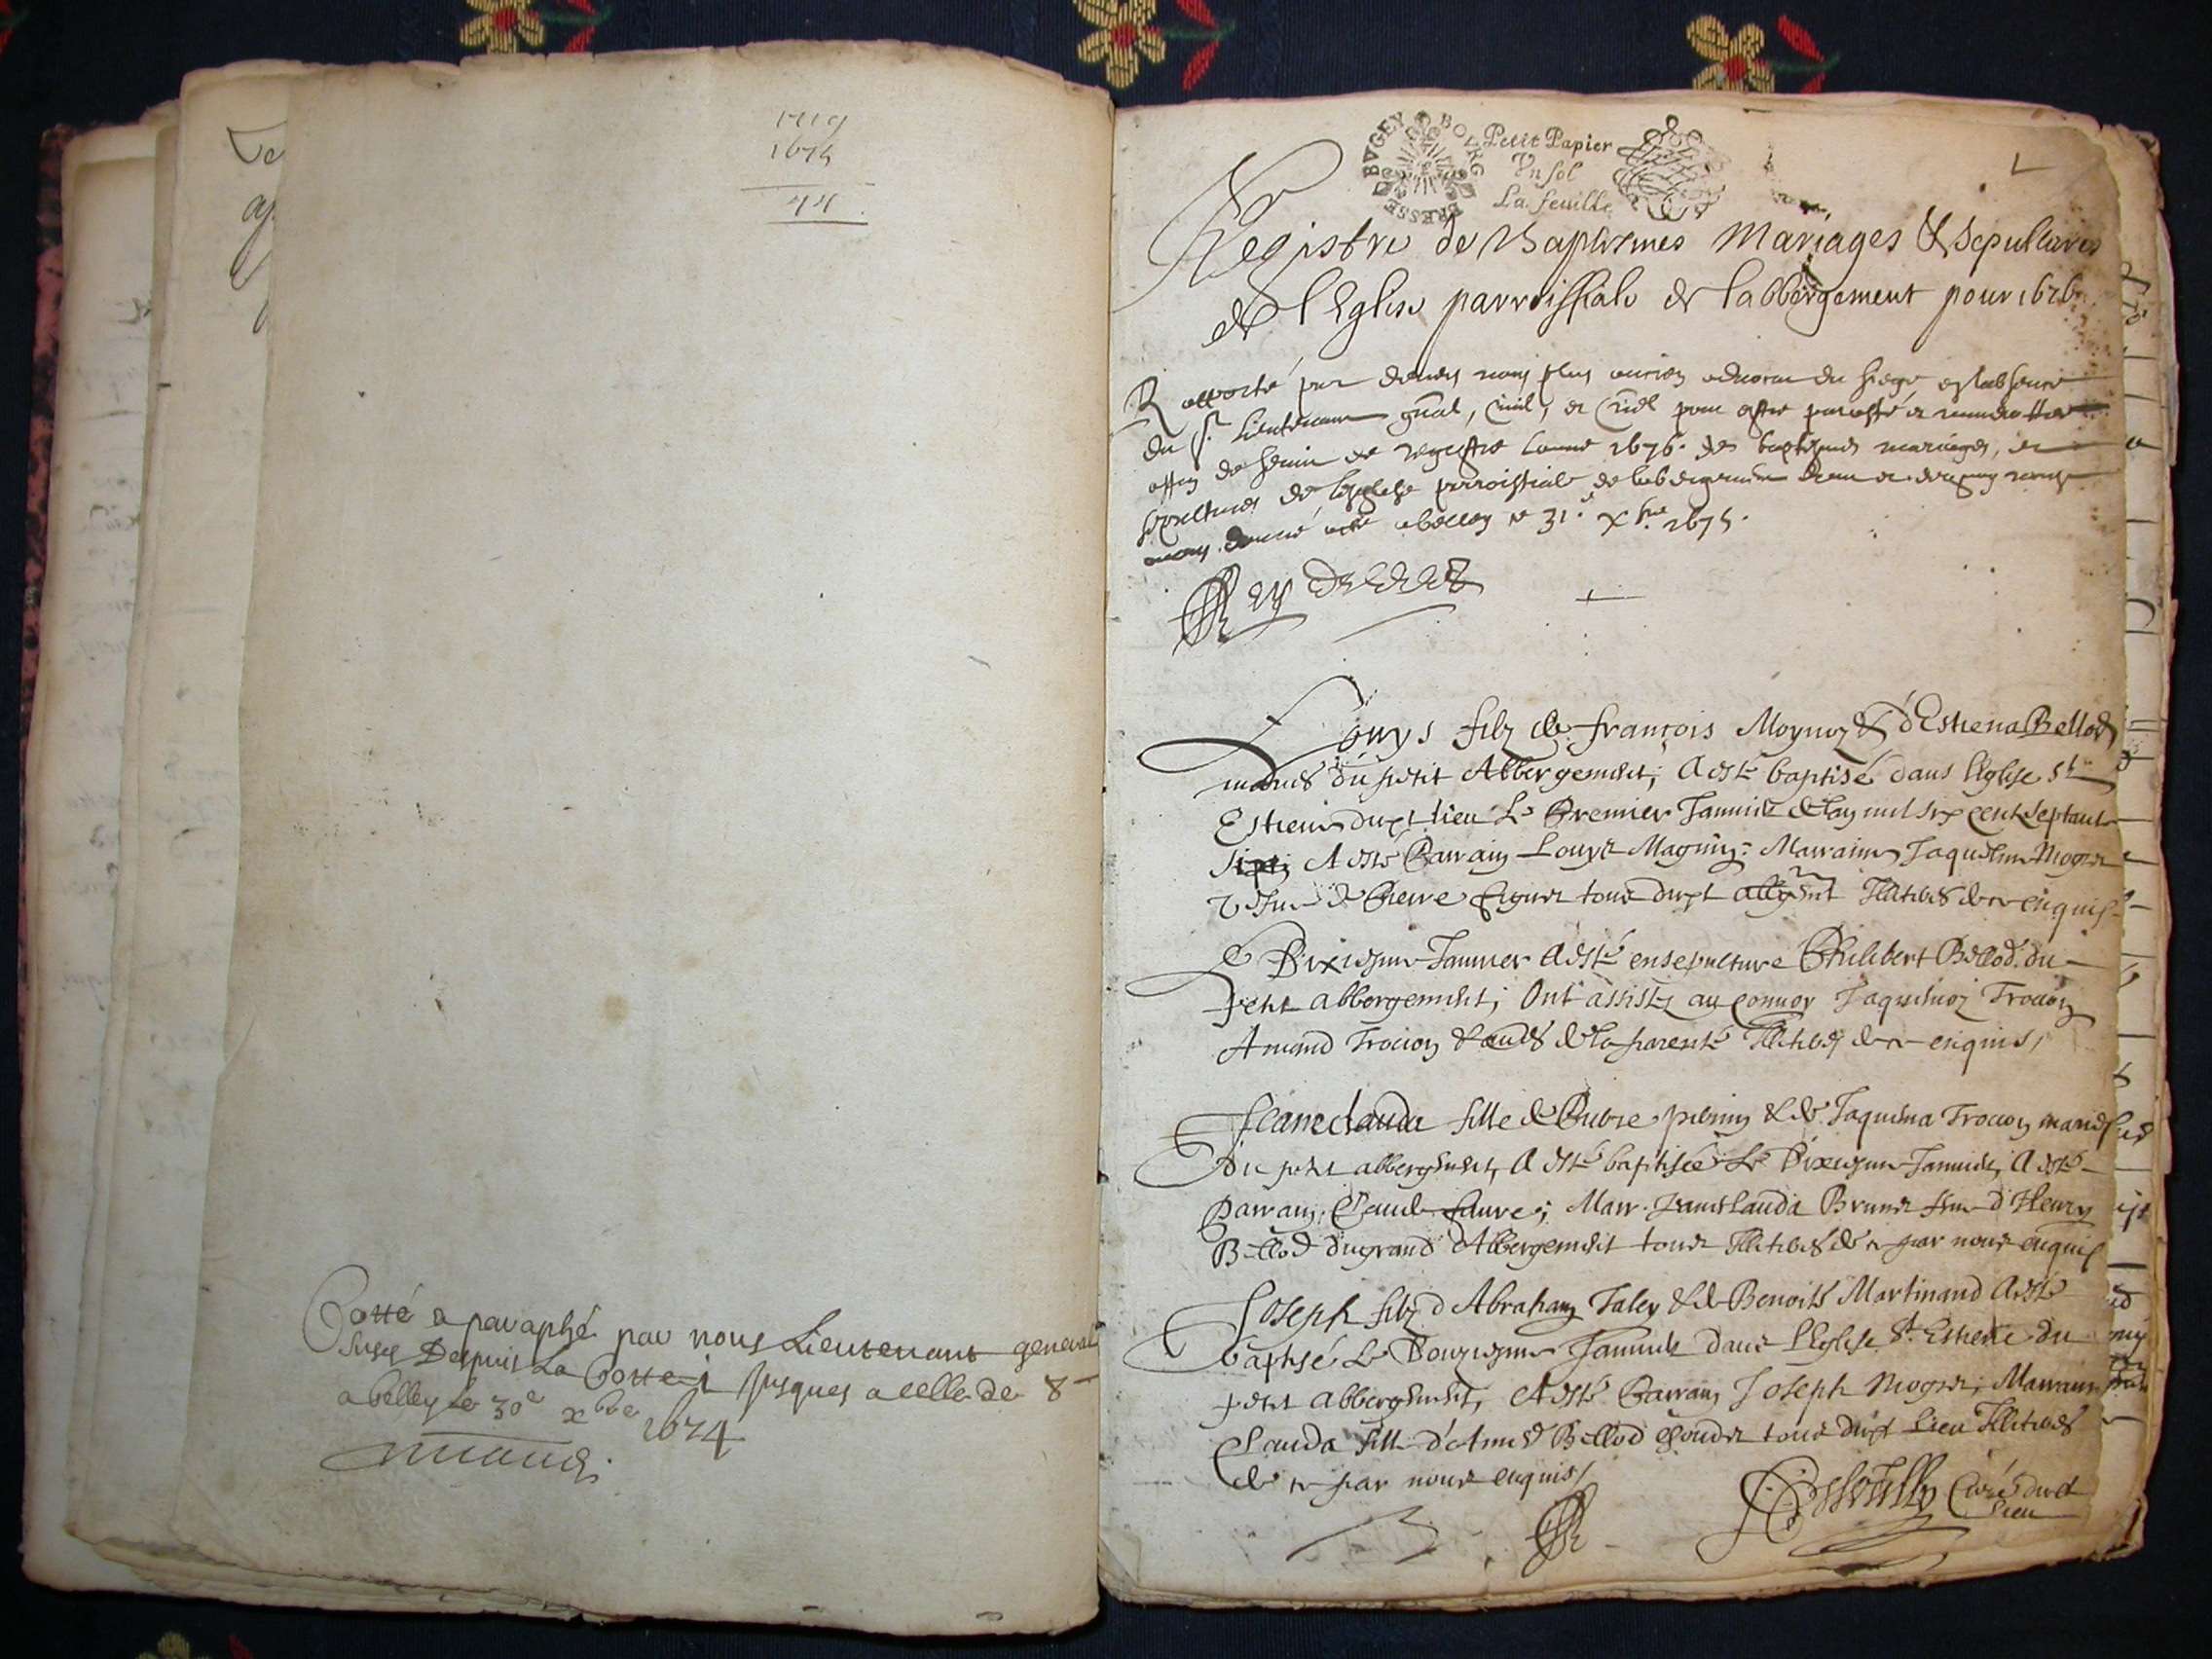 1719
1675
44
Cotté & paraphé par nous Lieutenant general
susd Despuis La Cotte 1 jusques a celle de 8
a belley le 30e xbre 1674
BVGEY BOVRG BRESSE
Petit Papier
Vn sol
La feuille
Registre de Baptesmes Mariages & Sepultures
de l'Eglise parroissiale de l'abbergement pour 1676
Rapporté par devers nous plus ancien advocat du siege en l'absence
du sr. Lieutenant gnal, Civil, et Criel pour estre paraffé et
affin de servir de registre l'année 1676. des baptesmes mariages, et
sepultures de l'eglise parroissiale de
donné acte a belley ce 31e xbre 1675.
Louys filz de françois Moynoz & d'Estiena Bellod
mariés du petit Abbergement, A esté baptisé dans l'eglise St
Estienne dudt lieu le Premier Janvier de l'an mil six cent septante
six; A esté Parrain Louys Magnin; Marraine Jaqueline Mogier
vefve de Pierre tous dudt Illiterés de ce enquis
Le Dixiesme Janvier A esté ensepulturé Philibert Bellod du
petit abbergement; Ont assisté au convoy Jaquemoz Trocion
Amand Trocion & auts de la parenté Illiterés de ce enquis,
Jeaneclauda fille de Pierre & de Jaquema Trocion mariés
du petit abbergement, A esté baptisée le Dixiesme Janvier, A esté
Parrain, Claude favre; Marr. Janeclauda Brunet fme d'Henry
Bellod du grand Abbergement tous Illiterés de ce par nous enquis
Joseph filz d'Abraham Taley & de Benoite Martinand A esté
baptisé le Douziesme Janvier dans l'Eglise St. Estiene du
petit abbergement, A esté Parrain Joseph Mogier; Marraine
Clauda fille d'Aimé Bellod tous dudt lieu Illiterés
de ce par nous enquis
Curé dudt
lieu